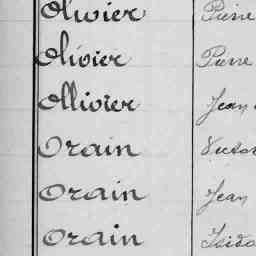 Olivier Pierre
Olivier Pierre
Ollivier Jean
Orain Victor
Orain Jean
Orain Isido